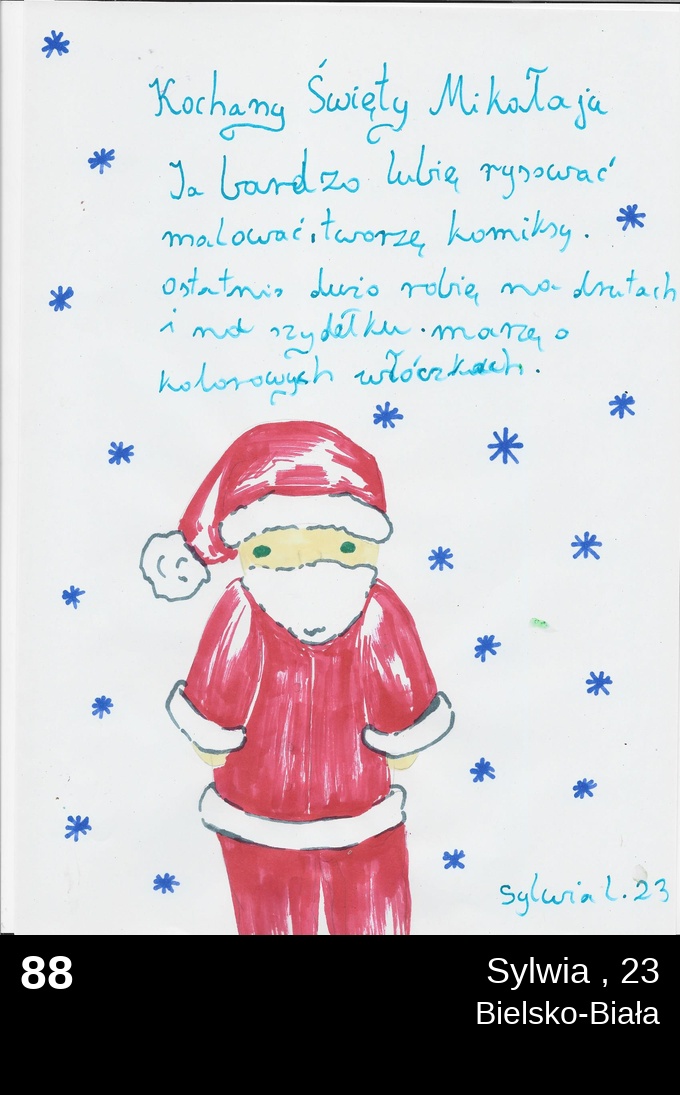 Kochany Święty Mikołaju
Ja bardzo lubię rysować
malować, tworzę komiksy.
ostatnio dużo robię na drutach
i na szydełku. marzę o
kolorowych włóczkach.
Sylwia l. 23
88
Sylwia , 23
Bielsko-Biała